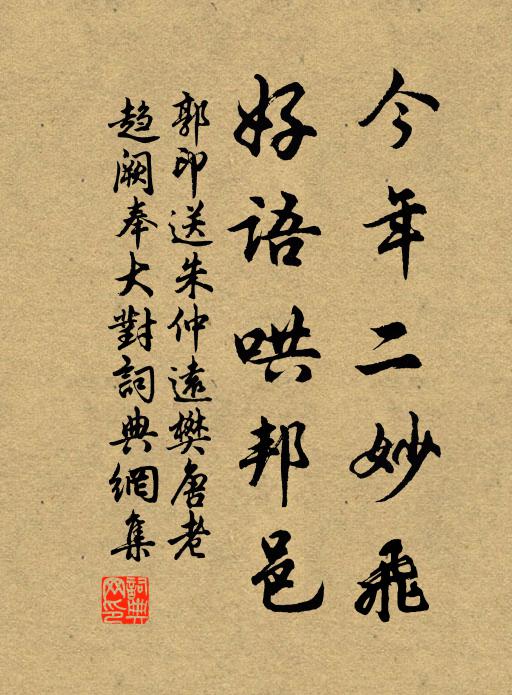 今年二妙飛
好語哄邦邑
郭印送朱仲遠樊唐老
趨闕奉大對詞典網集
詞典網印